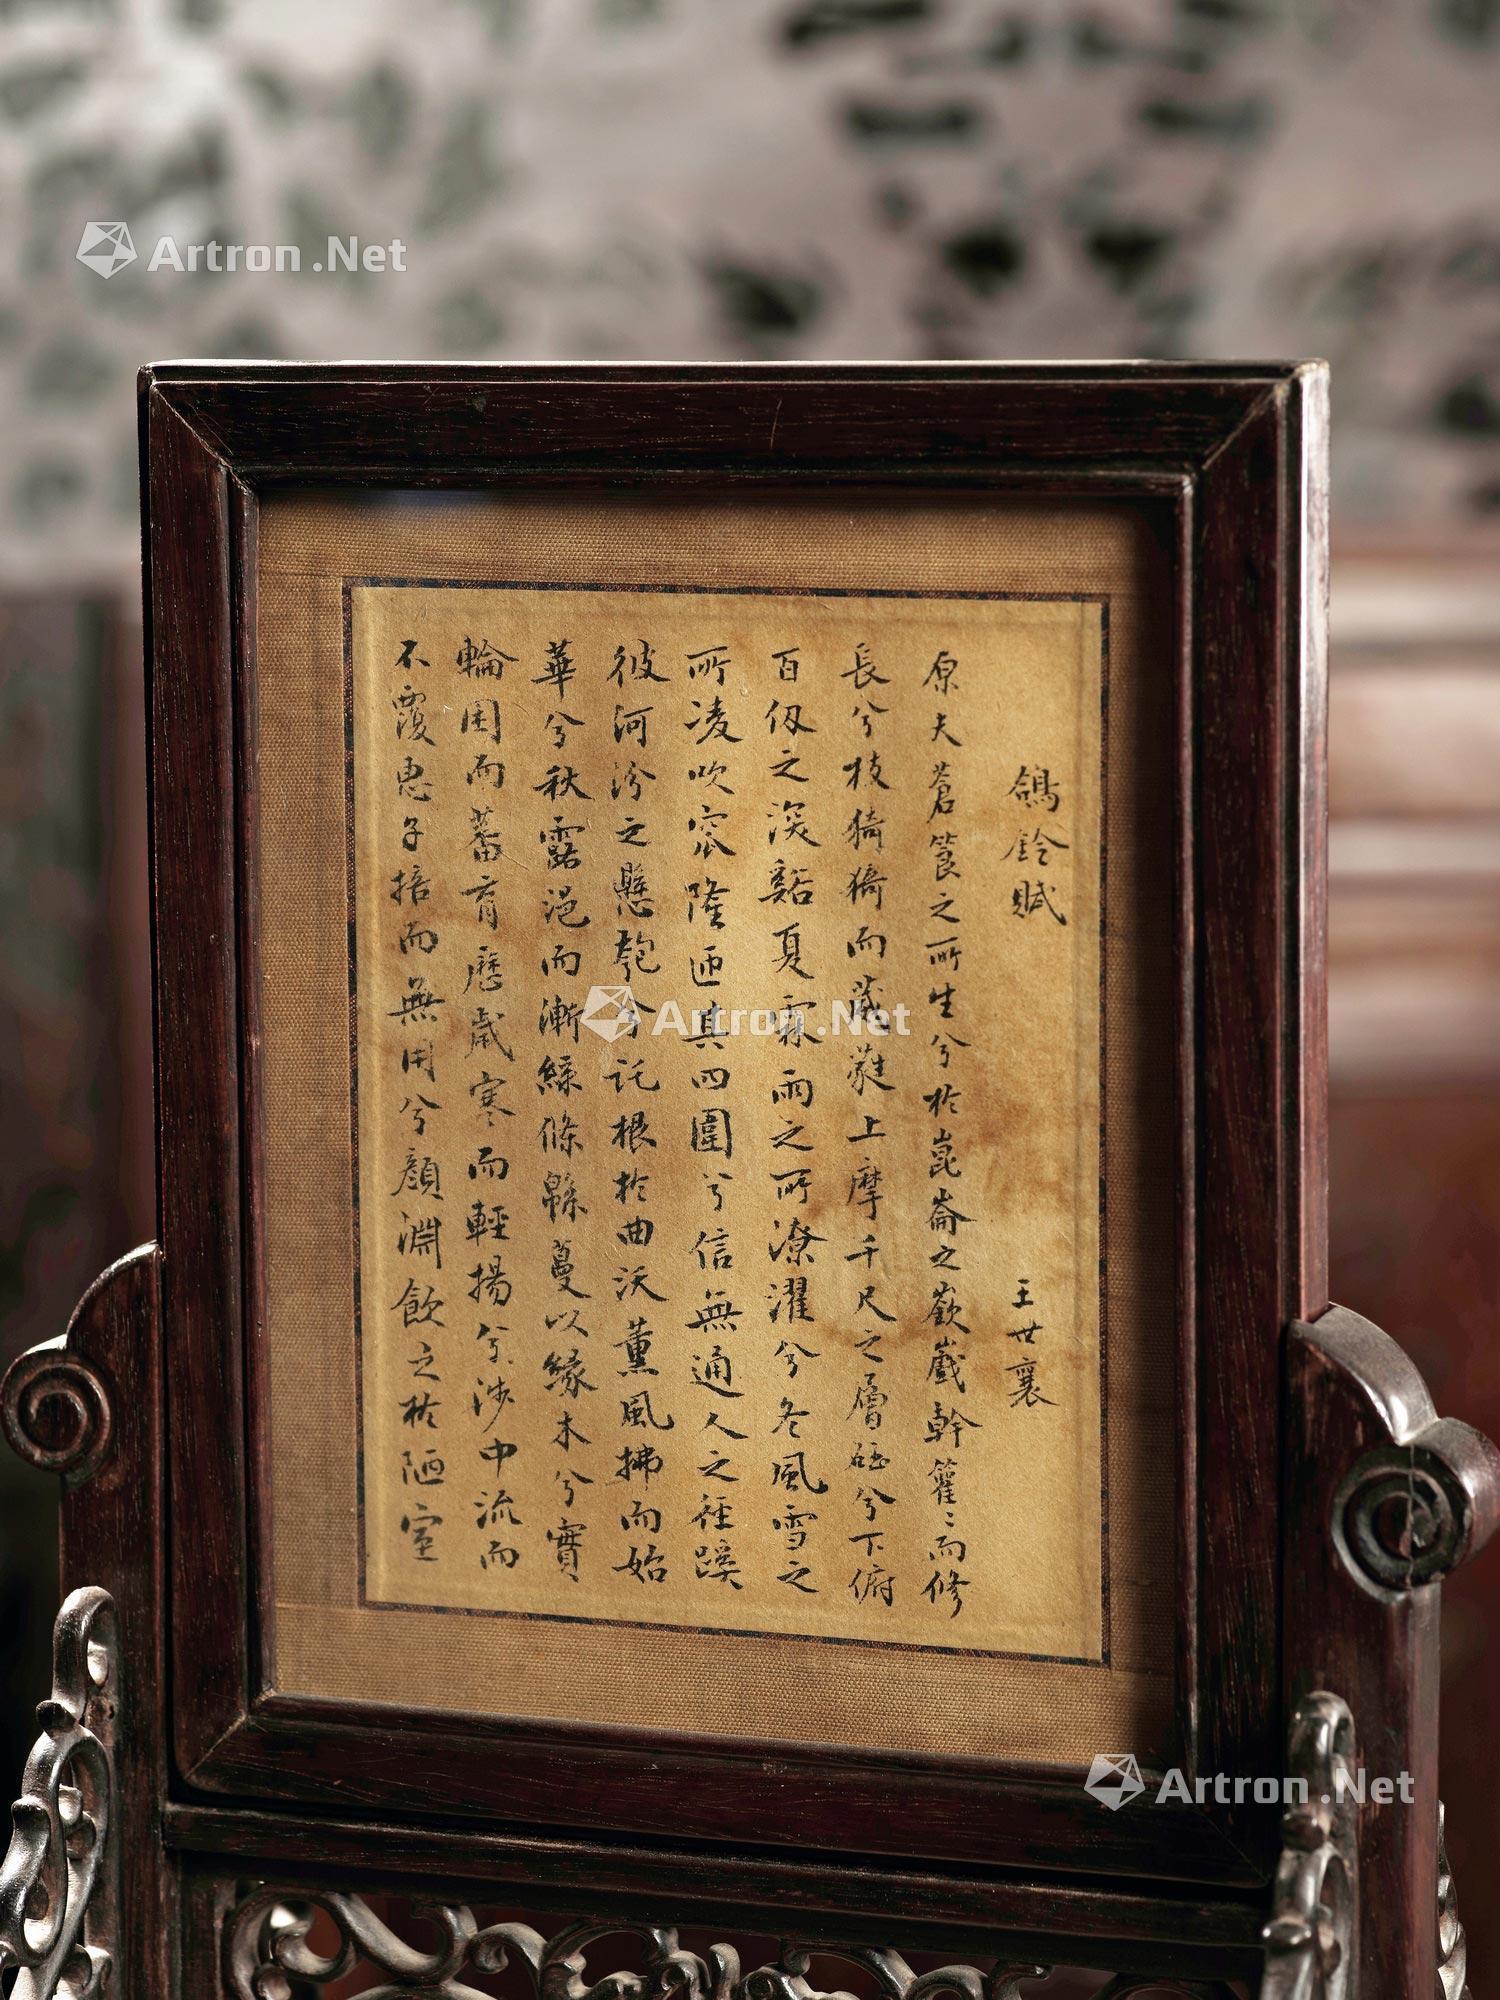 鴿鈴賦 王世襄
原夫蒼筤之所生兮於崑崙之嶔巇幹籊〻而修
長兮枝猗猗而葳蕤上摩千尺之層碰兮下俯
百仭之深谿夏霖雨之所潦濯兮冬風雪之
所凌吹窮隆迊其四圍兮信無通人之徑蹊
彼河汾之懸匏兮託根於曲沃薰風拂而始
華兮秋露浥而漸綠條緜蔓以緣木兮實
輪囷而蕃育歷歲寒而輕揚兮涉中流而
不覆惠子掊而無用兮顏淵飲之於陋室
Artron.Net
Artron.Net
Artron.Net